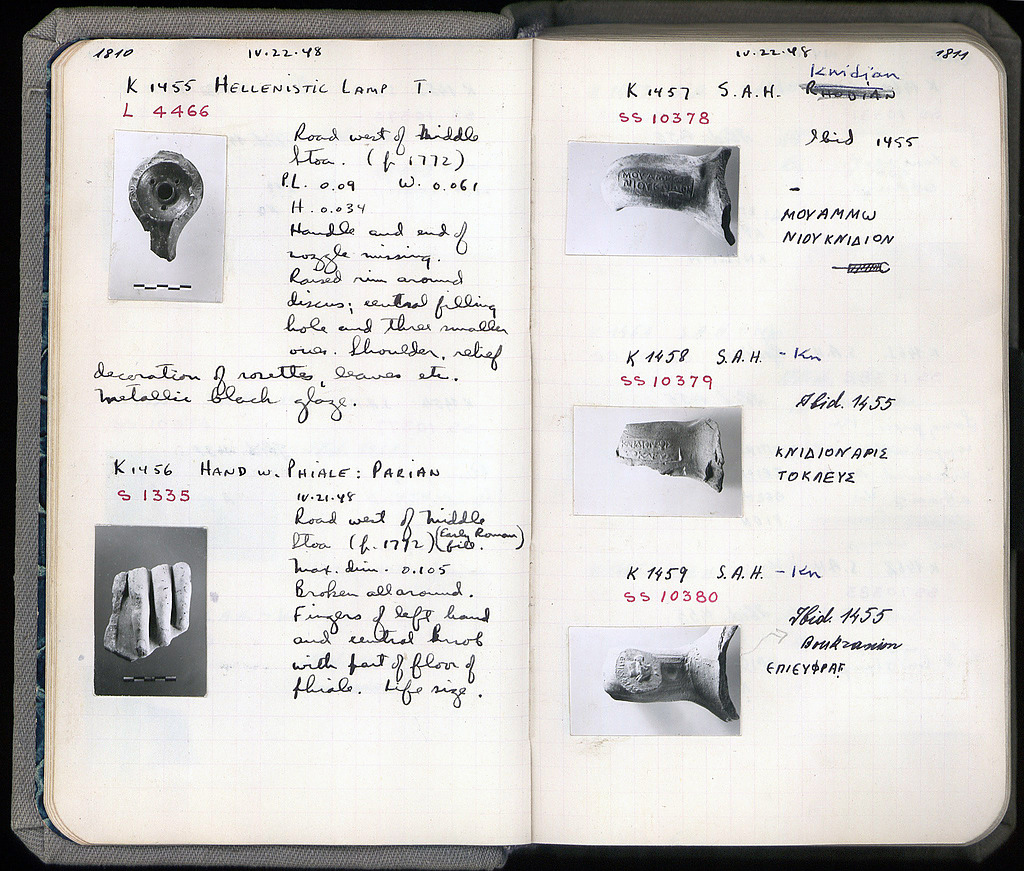 1810
IV.22.48
K 1455 HELLENISTIC LAMP T.
L 4466
Road west of Middle
Stoa. (p. 1772)
P.L. 0.09 W. 0.061
H. 0.034
Handle and end of
nozzle missing.
Raised rim around
discus; central filling
hole and three smaller
ones. Shoulder, relief
decoration of rosettes, leaves etc.
Metallic black glaze.
K 1456 HAND W. PHIALE: PARIAN
S 1335
IV.21.48
Road west of Middle
Stoa (p. 1772) (Early Roman)
fill.
Max. dim. 0.105
Broken all around.
Fingers of left hand
and central knob
with part of floor of
phiale. Life size.
IV.22.48
1811
Knidian
K 1457 S.A.H. RHODIAN
SS 10378
Ibid 1455
ΜΟΥΑΜΜΩ
ΝΙΟΥΚΝΙΔΙΟΝ
K 1458 S.A.H. - Kn
SS 10379
Ibid. 1455
ΚΝΙΔΙΟΝΑΡΙΣ
ΤΟΚΛΕΥΣ
K 1459 S.A.H. - Kn
SS 10380
Ibid. 1455
Boukranion
ΕΠΙΕΥΦΡΑΓ